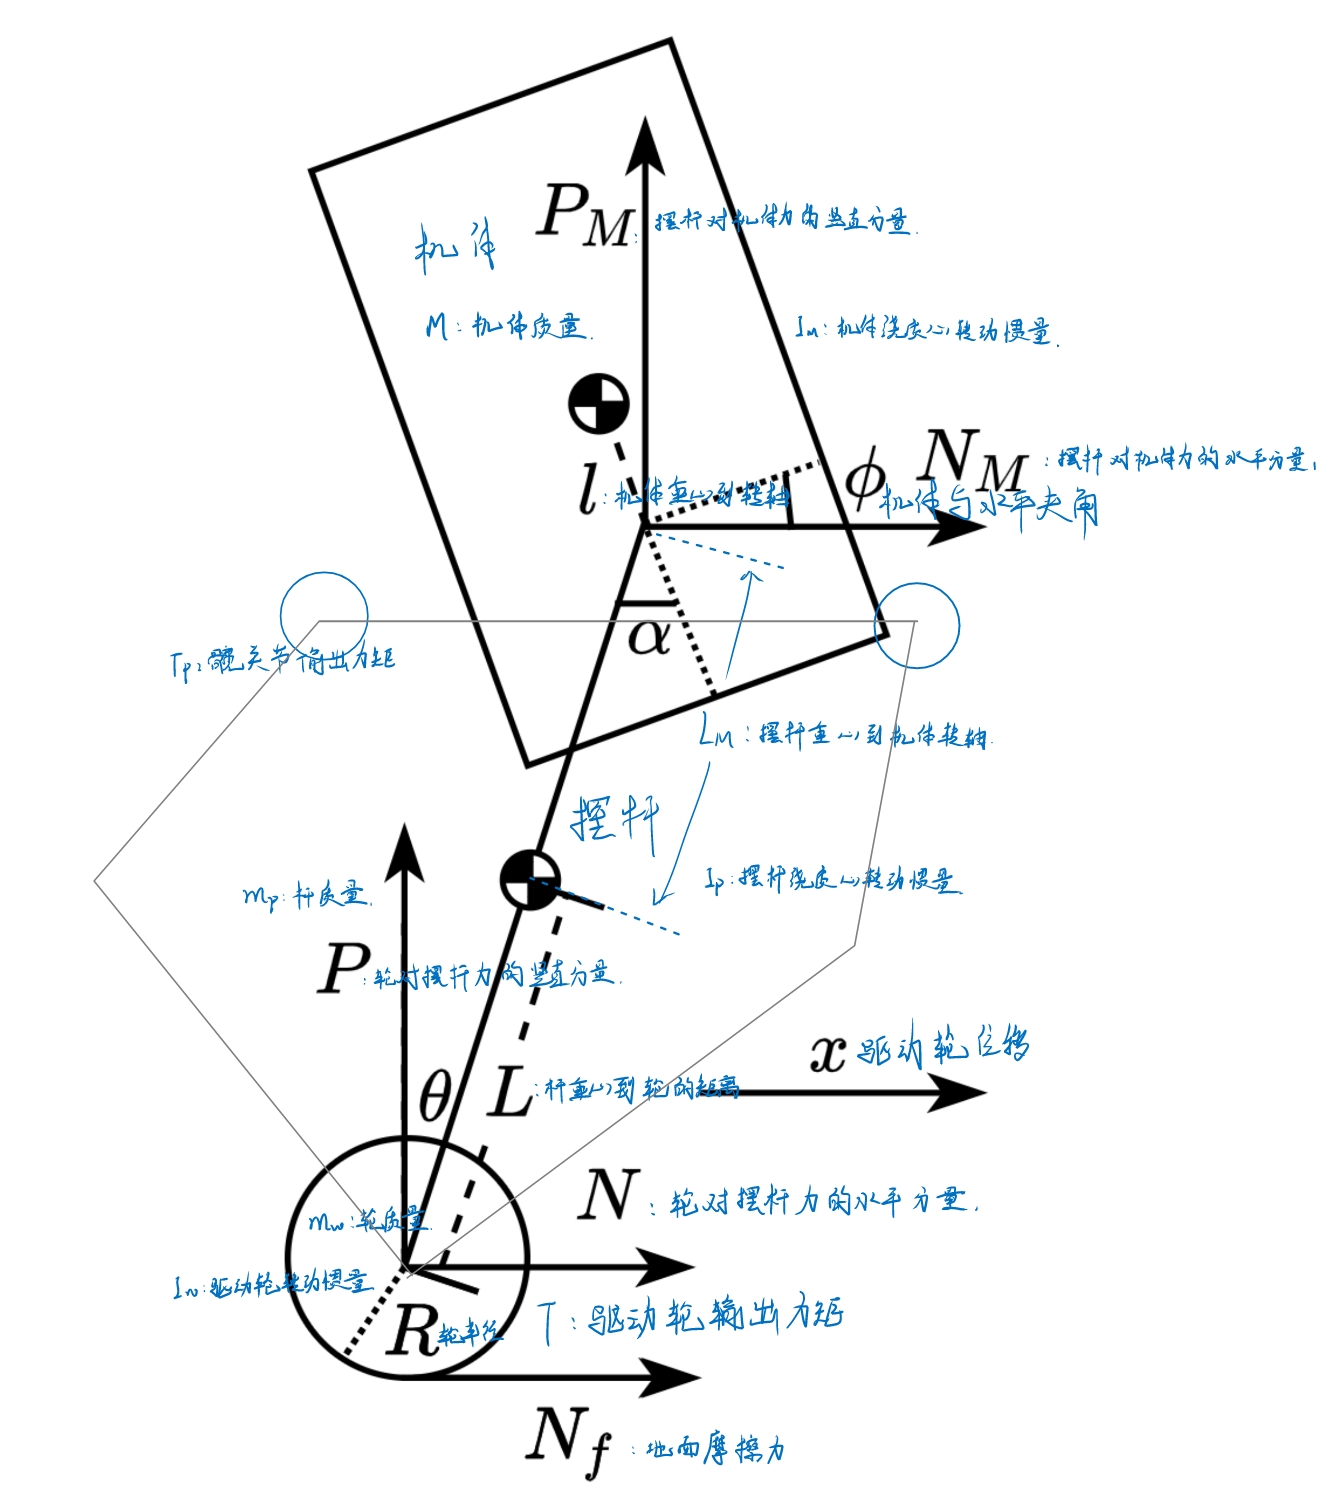 P_M：摆杆对机体力的竖直分量.
机体
M：机体质量.
I_M：机体绕质心转动惯量.
N_M：摆杆对机体力的水平分量,
ϕ 机体与水平夹角
l：机体重心到转轴
α
T_p：髋关节输出力矩
L_M：摆杆重心到机体转轴.
摆杆
I_p：摆杆绕质心转动惯量.
m_p：杆质量.
P：轮对摆杆力的竖直分量.
x 驱动轮位移
θ
L：杆重心到轮的距离
N：轮对摆杆力的水平分量.
m_w：轮质量.
I_w：驱动轮转动惯量.
R 轮半径
T：驱动轮输出力矩
N_f：地面摩擦力